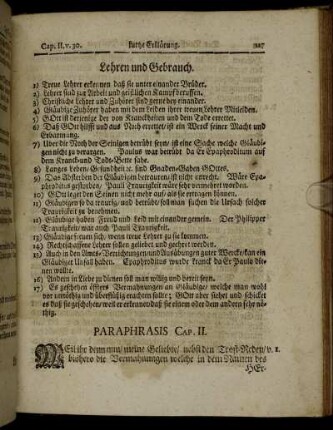 Cap. II. v. 30. kurtze Erklärung. 227
Lehren und Gebrauch.
1) Treue Lehrer erkennen daß sie unter einander Brüder.
2) Lehrer sind zur Arbeit und geistlichen Kampf beruffen.
3) Christliche Lehrer und Zuhörer sind gemeldey einander.
4) Gläubige Zuhörer haben mit dem Leiden ihrer treuen Lehrer Mitleiden.
5) GOtt ist derjenige der von Kranckheiten und dem Tode errettet.
6) Daß GOtt hilfft und aus Noth errettet/ ist ein Werck seiner Macht und
Erbarmung.
7) Über die Noth der Seinigen betrübt seyn/ ist eine Sache welche Gläubi-
gen nicht zu versagen. Paulus war betrübt da Er Epaphroditum auf
dem Kranck und Todt-Bette sahe.
8) Langes Leben/ Gesundheit rc. sind Gnaden-Gaben GOttes.
9) Das Absterben der Gläubigen betrauren/ ist nicht erwehrt. Wäre Epa-
phroditus gestorbe, Pauli Traurigkeit wäre sehr vermehret worden.
10) GOtt leget den Seinen nicht mehr auf/ als sie ertragen können.
11) Gläubigen so da traurig und betrübt soll man suchen die Ursach solcher
Traurigkeit zu benehmen.
12) Gläubige haben Freud und Leid mit einander gemein. Der Philipper
Traurigkeit war auch Pauli Traurigkeit.
13) Gläubige freuen sich/ wenn treue Lehrer zu sie kommen.
14) Rechtschaffene Lehrer sollen geliebet und geehret werden.
15) Auch in den Amts-Verrichtungen und Ausübungen guter Wercke kan ein
Gläubiger Unfall haben. Epaphroditus wurde kranck da Er Paulo die-
nen wollte.
16) Andern in Liebe zu dienen soll man willig und bereit seyn.
17) Es geschehen öffters Vermahnungen an Gläubige/ welche man wohl
vor unnöthig und überflüßig erachten sollte; GOtt aber siehet und schicket
es daß sie geschehen/ weil er erkennet daß sie einem oder dem andern sehr nö-
thig.
PARAPHRASIS CAP. II.
WEil ihr dem nun/ meine Geliebte/ nebst den Trost-Reden/ v. 1.
bißhero die Vermahnungen welche in dem Namen des
HEr-